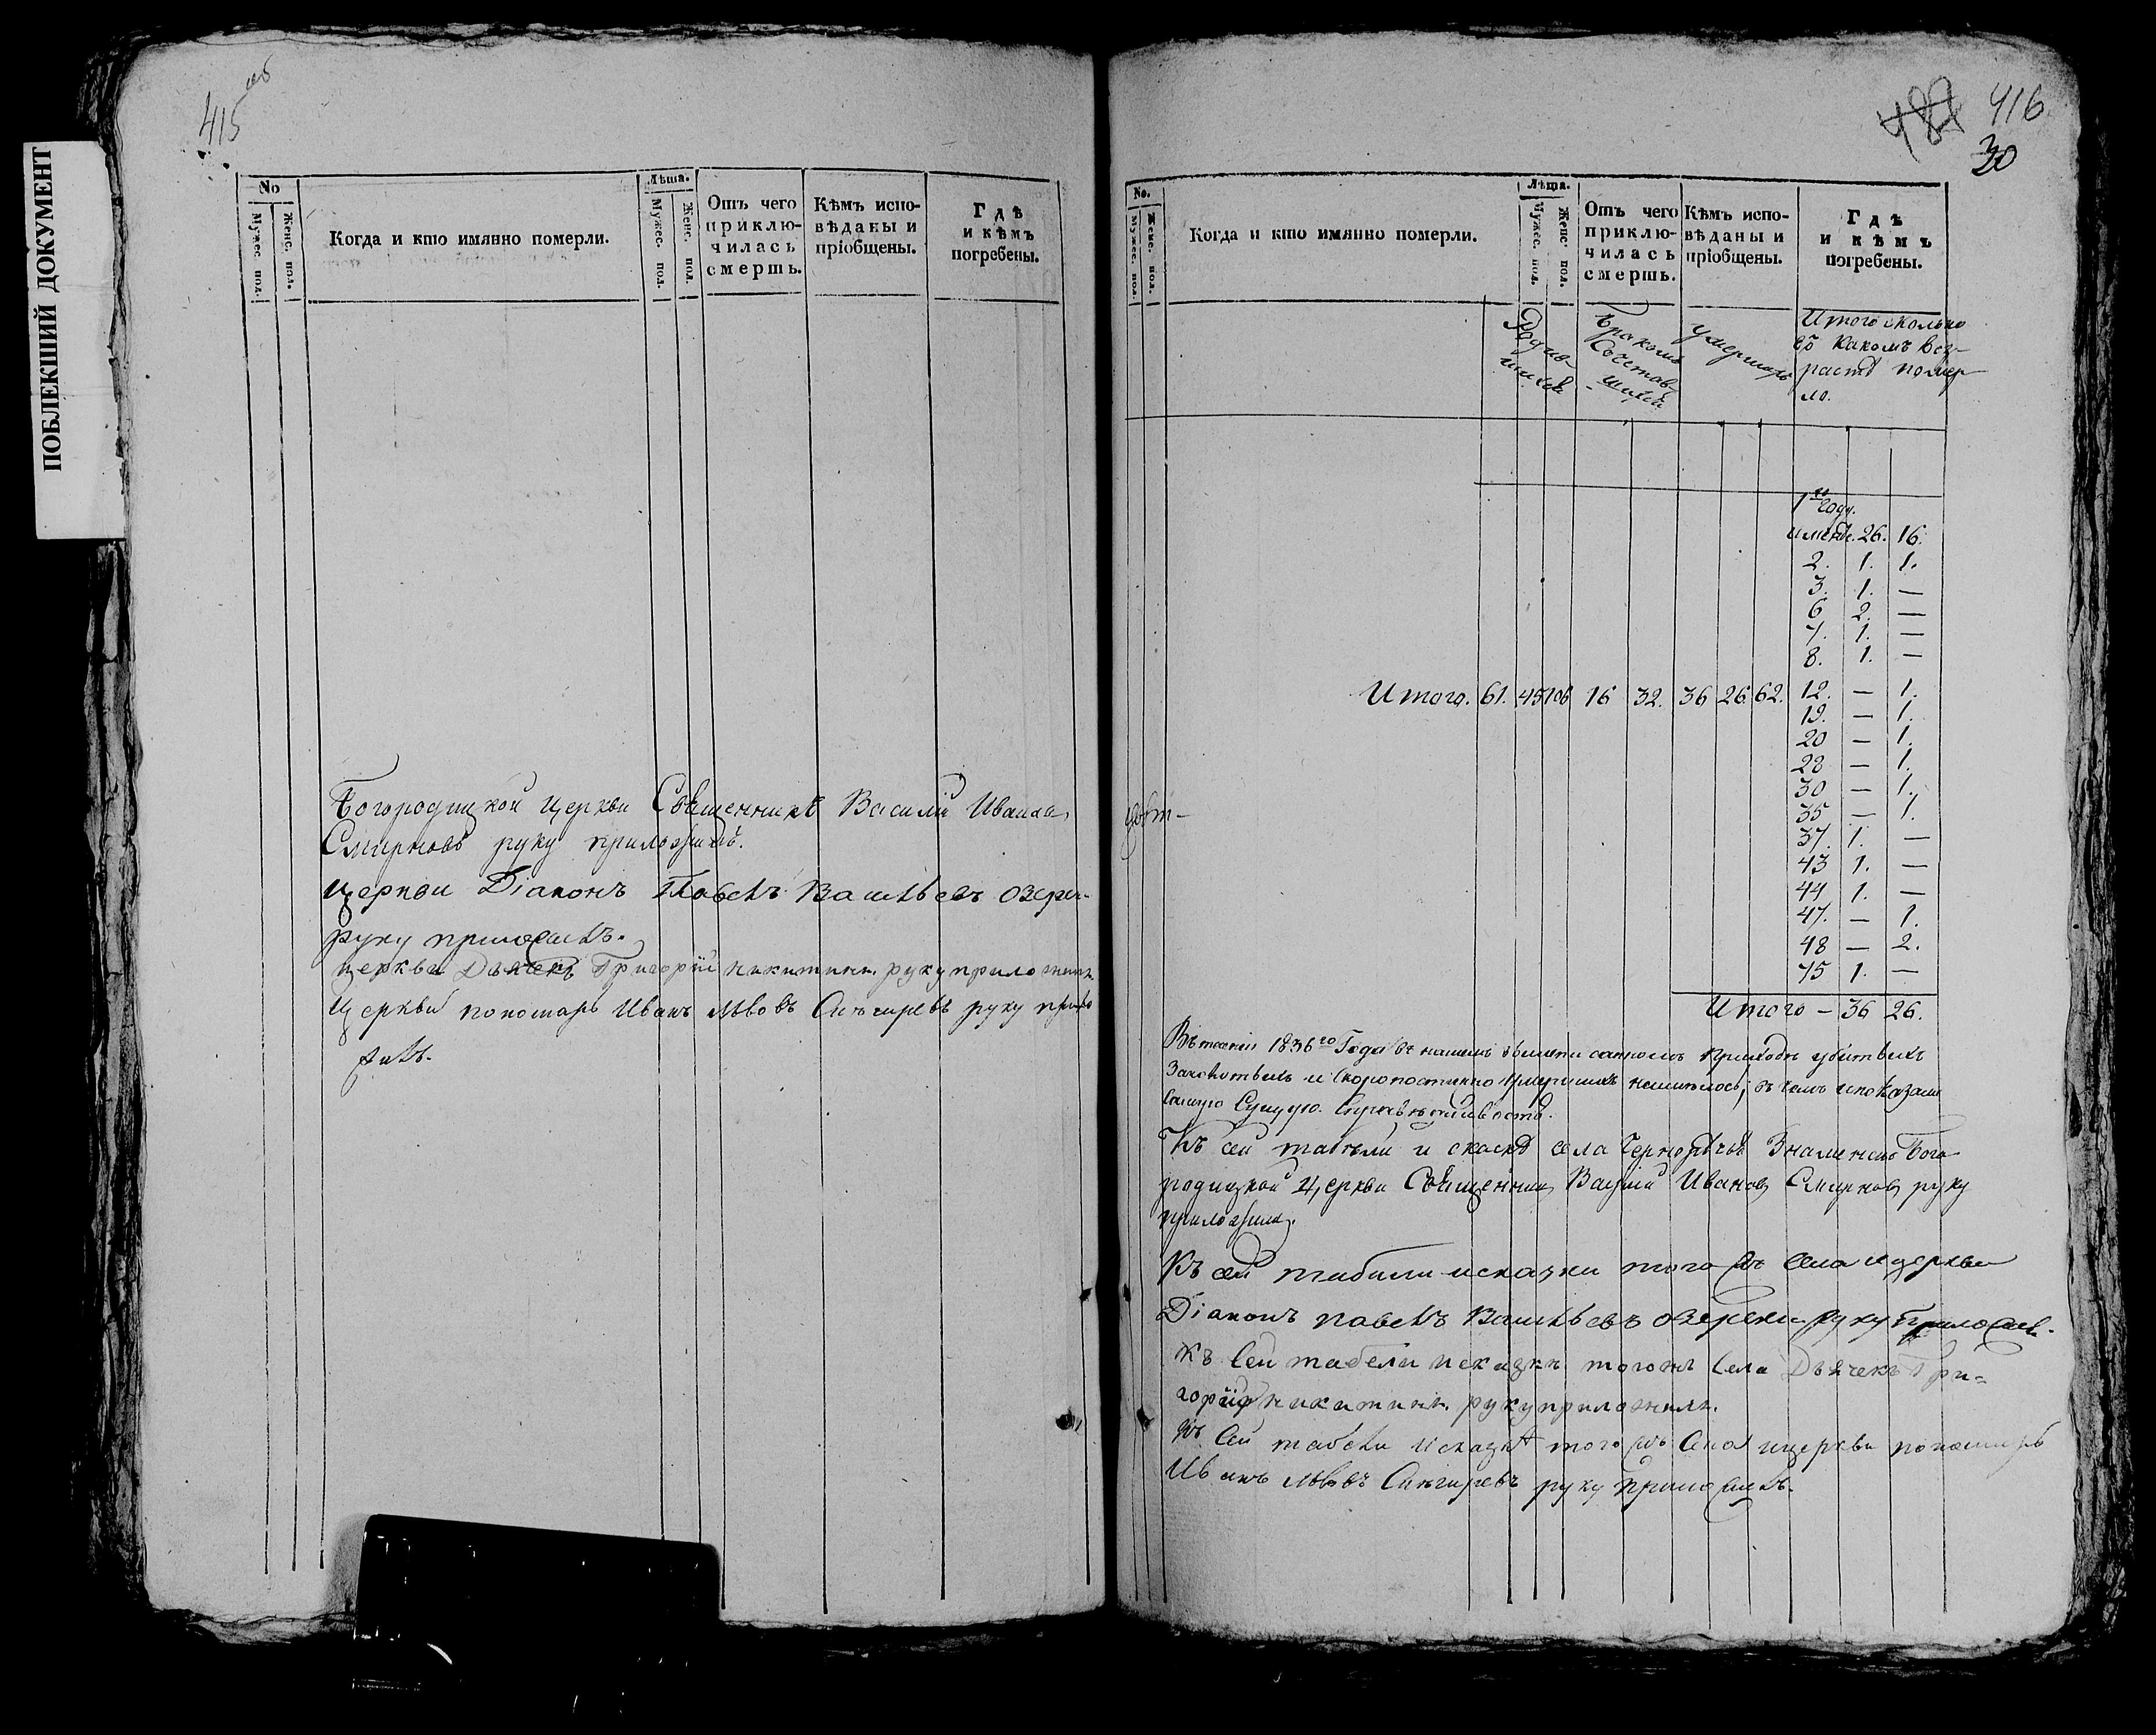 ПОБЛЕКШИЙ ДОКУМЕНТ
415 об
No
Мужес. пол.
Женс. пол.
Когда и кто имянно померли.
Лѣта.
Мужес. пол.
Женс. пол.
Отъ чего приклю-чилась смерть.
Кѣмъ испо-вѣданы и пріобщены.
Гдѣ и кѣмъ погребены.
Богородицкой церкви Священникъ Василій Ивановъ
Смирновъ руку приложилъ.
церкви Діаконъ Павелъ Васильевъ
руку приложилъ.
церкви Дьячекъ Григорій Никитинъ руку приложилъ
Церкви пономарь Иванъ Львовъ Снѣгиревъ руку прило
жилъ.
416
30
No.
Мужес. пол.
Женс. пол.
Когда и кто имянно померли.
Лѣта.
Мужес. пол.
Женс. пол.
Отъ чего приклю-чилась смерть.
Кѣмъ испо-вѣданы и пріобщены.
Гдѣ и кѣмъ погребены.
Родив-
шихся
Бракомъ
Сочетав-
шихся
Умершихъ
Итого сколько
въ какомъ воз-
растѣ помер-
ло.
1го году.
26. 16.
2. 1. 1.
3. 1. —
6 2. —
7. 1. —
8. 1. —
Итого. 61. 45 106 16 32. 36 26 62. 12. — 1.
19. — 1.
20 — 1.
28 — 1.
30 — 1.
35 — 1.
37. 1. —
43 1. —
44 1. —
47. — 1.
48 — 2.
75 1. —
Итого — 36 26.
Въ теченіи 1836го Года въ нашемъ приходѣ убитыхъ
и скоропостижно умершихъ неимѣлось; въ чемъ и показали
самую Сущую Справедливость.
Къ сей табели и сказкѣ села Чернорѣчья Знаменско Бого
родицкой Церкви Священникъ Василій Ивановъ Смирновъ руку
приложилъ.
Къ сей табели и сказки того жъ села и церкви
Діаконъ Павелъ Васильевъ руку приложилъ.
Къ сей табели и сказкѣ тогожъ села Дьячекъ Гри-
горій Никитинъ руку приложилъ.
Къ сей табели и сказкѣ того жъ села и церкви пономарь
Иванъ Львовъ Снѣгиревъ руку приложилъ.